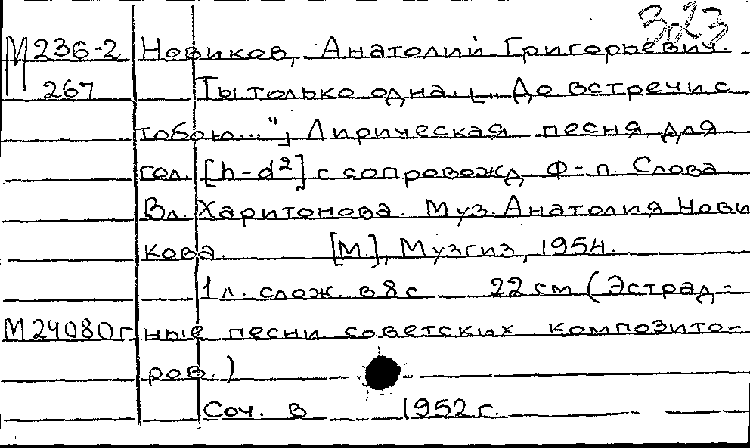 323
М 236-2 Новиков, Анатолий Григорьевич.
267 Ты только одна... „До встречи с
тобою..."; Лирическая песня для
гол. [h-d²] с сопровожд. ф-п. Слова
Вл. Харитонова. Муз. Анатолия Нови
кова. [М.], Музгиз, 1954.
1 л. слож. в 8 с 22 см (Эстрад-
М24080г. ные песни советских композито-
ров.)
Соч. в 1952 г.